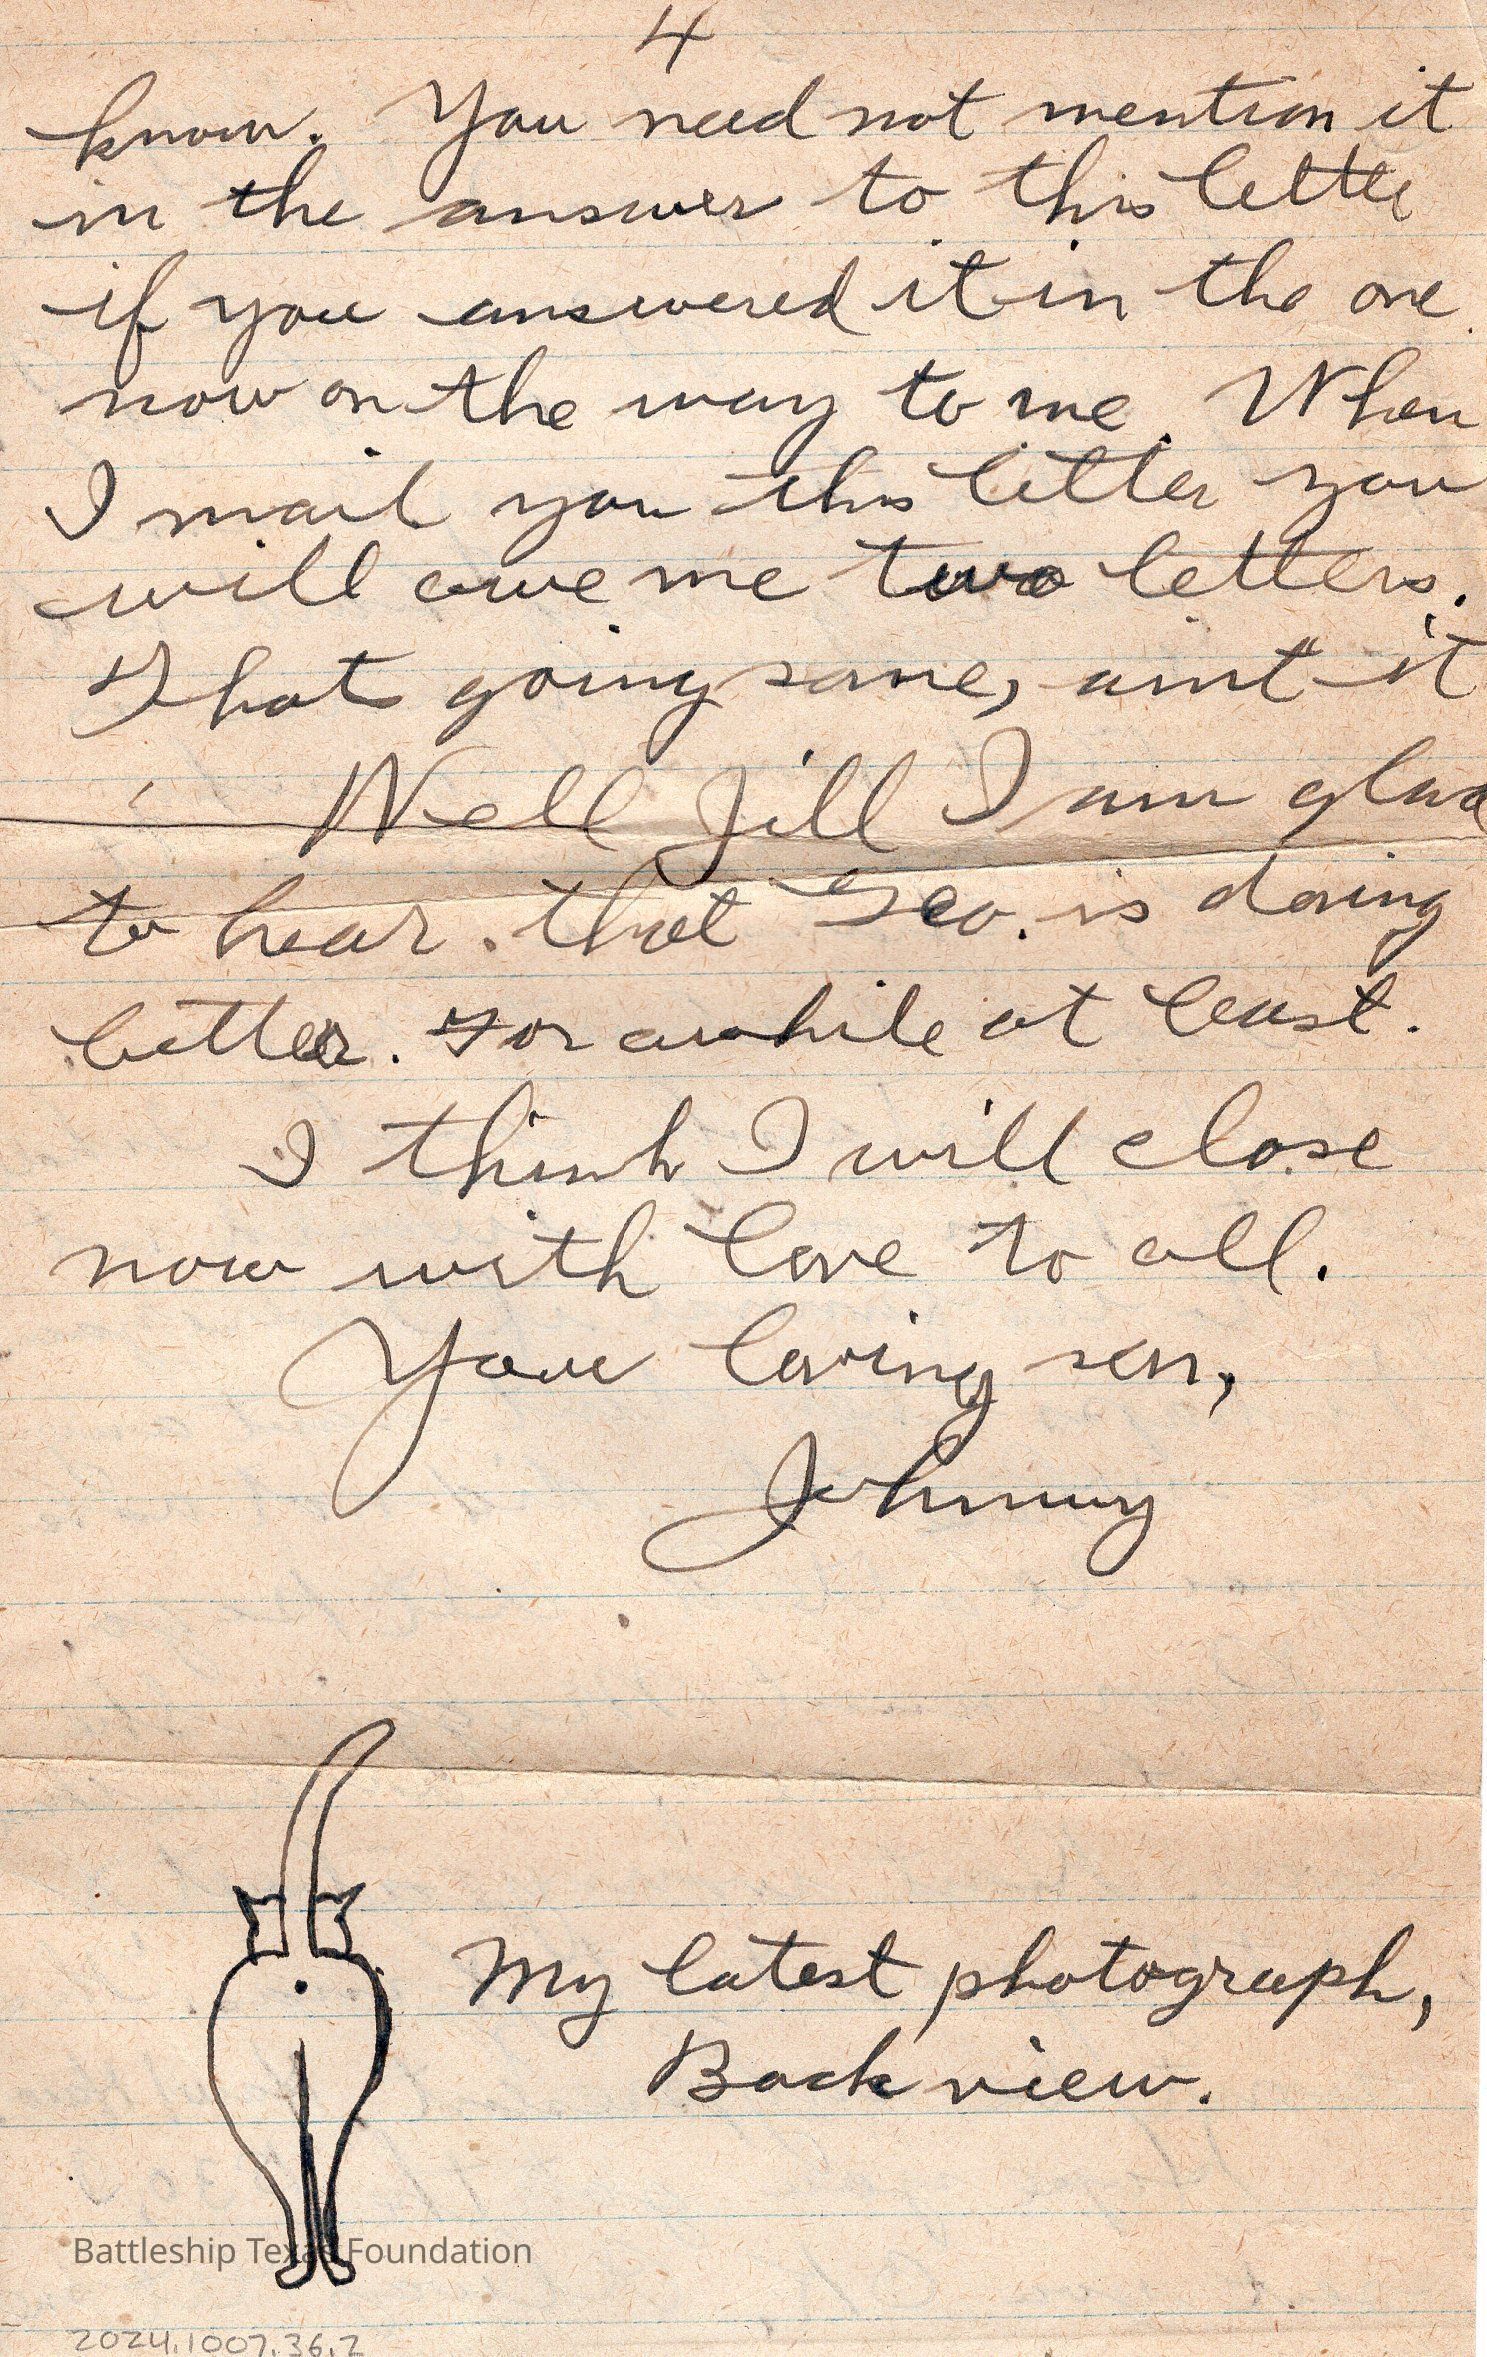 4
know. You need not mention it
in the answer to this letter
if you answered it in the one
now on the way to me. When
I mail you this letter you
will owe me two letters.
Thats going some, aint it
Well Jill I am glad
to hear that Geo. is doing
better. For awhile at least.
I think I will close
now with love to all.
Your loving son,
Johnny
My latest photograph,
Back view.
Battleship Texas Foundation
2024.1007.36.2